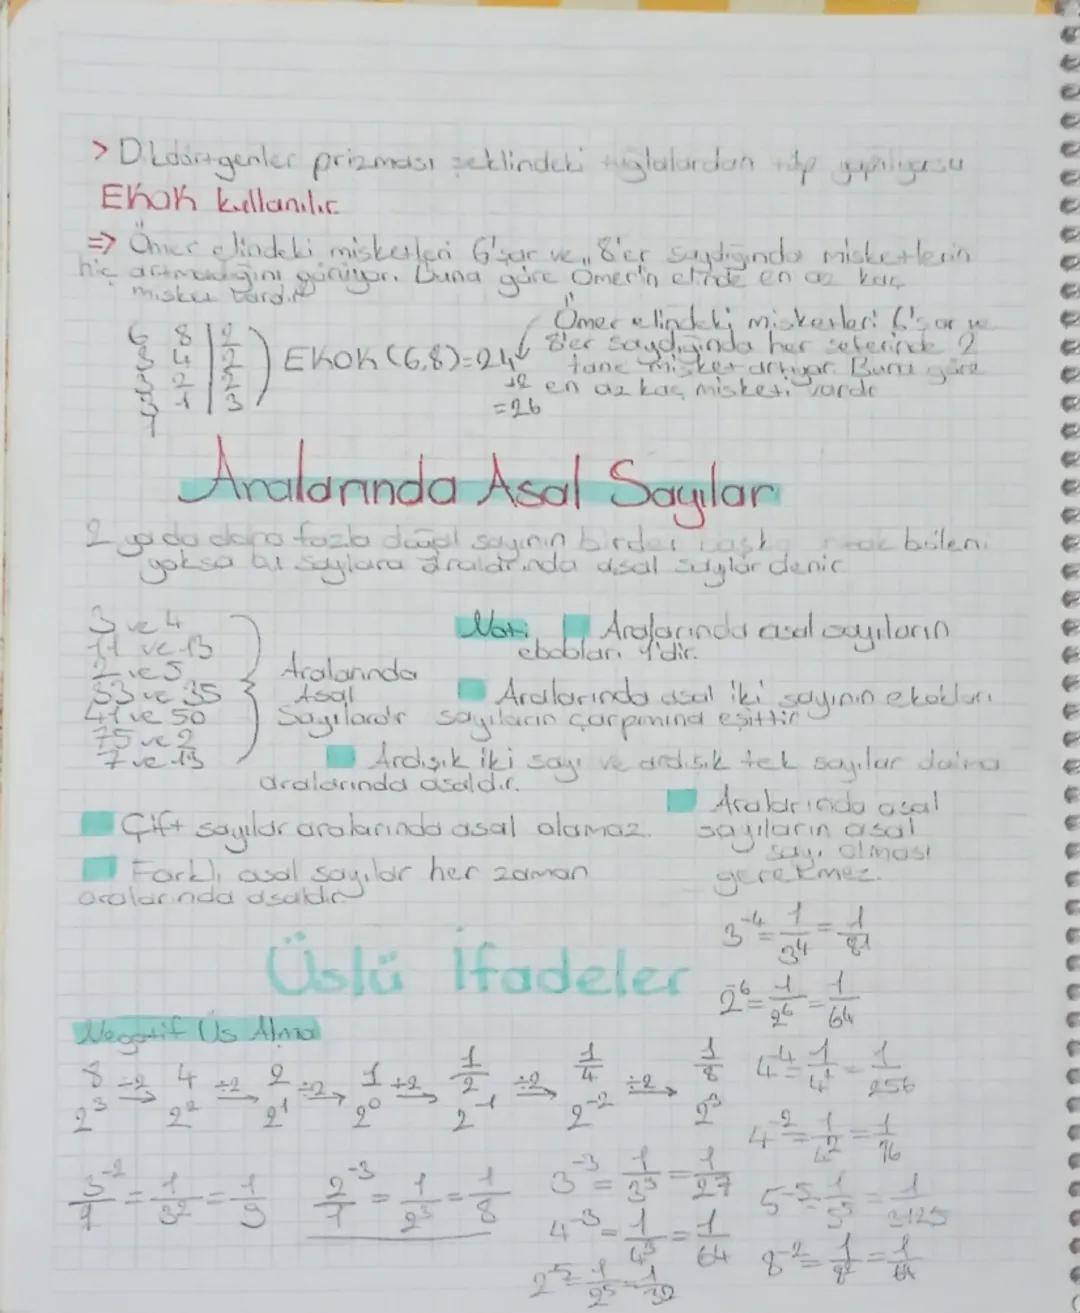 > Dikdörtgenler prizması şeklindeki tuğlalardan küp yapılıyorsa
EKOK kullanılır
=> Ömer elindeki misketleri 6'şar ve 8'er saydığında misketlerin
hiç artmadığını görüyor. Buna göre Ömer'in elinde en az kaç
misket vardır
Ömer elindeki misketleri 6'şar ve
8'er saydığında her seferinde 2
tane misket artıyor. Buna göre
en az kaç misketi vardır
6 8 | 2
3 4 | 2
3 2 | 2
3 1 | 3
1
EKOK (6,8)=24
+2
=26
Aralarında Asal Sayılar
2 ya da daha fazla doğal sayının birden başka ortak böleni
yoksa bu sayılara aralarında asal sayılar denir
3 ve 4
11 ve 13
2 ve 5
33 ve 35
41 ve 50
75 ve 2
7 ve 13
Aralarında
Asal
Sayılardır
Not: Aralarında asal sayıların
ebobları 1'dir.
Aralarında asal iki sayının ekokları
sayıların çarpımına eşittir
Ardışık iki sayı ve ardışık tek sayılar daima
aralarında asaldır.
Çift sayılar aralarında asal olamaz.
Aralarında asal
sayıların asal
sayı olması
gerekmez.
Farklı asal sayılar her zaman
aralarında asaldır
Üslü İfadeler
Negatif Üs Alma
8 ÷2→ 4 ÷2→ 2 ÷2→ 1 ÷2→ 1/2 ÷2→ 1/4 ÷2→ 1/8
2³ 2² 2¹ 2⁰ 2⁻¹ 2⁻² 2⁻³
3⁻²/1 = 1/3² = 1/9
2⁻³/1 = 1/2³ = 1/8
3⁻³ = 1/3³ = 1/27
4⁻³ = 1/4³ = 1/64
2⁻⁵ = 1/2⁵ = 1/32
3⁻⁴ = 1/3⁴ = 1/81
2⁻⁶ = 1/2⁶ = 1/64
4⁻⁴ = 1/4⁴ = 1/256
4⁻² = 1/4² = 1/16
5⁻⁵ = 1/5⁵ = 1/3125
8⁻² = 1/8² = 1/64